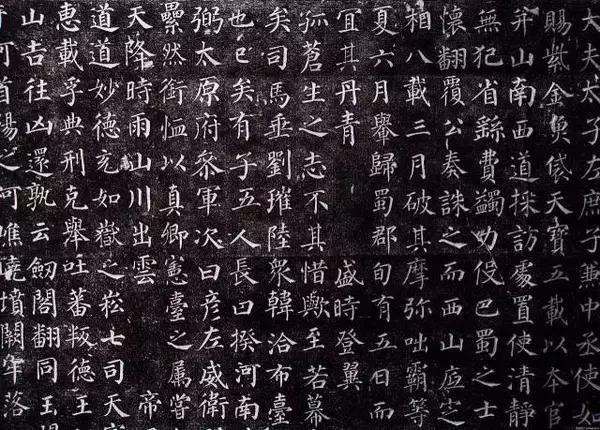 大夫太子左庶子兼中丞使如
賜紫金魚袋天寶五載以本官
弁山南西道採訪處置使清靜
無犯省繇費蠲力伇巴蜀之士
懷翻覆公奏誅之而西山底定
相八載三月破其摩弥咄霸等
夏六月轝歸蜀郡旬有五日而
宜其丹青 盛時登翼
孤蒼生之志不其惜歟至若幕
矣司馬垂劉璀陸衆韓洽布臺
也已矣有子五人長曰揆河南
弼太原府叅軍次曰彥左威衛
纍然銜恤以真卿憲臺之属嘗
天降時雨山川出雲 帝
道道妙德充如嶽之崧七司天
惠載孚典刑克舉吐蕃叛德王
山吉往凶還孰云劔閣翻同玉
可首陽之阿嶕嶢墳闕牢落